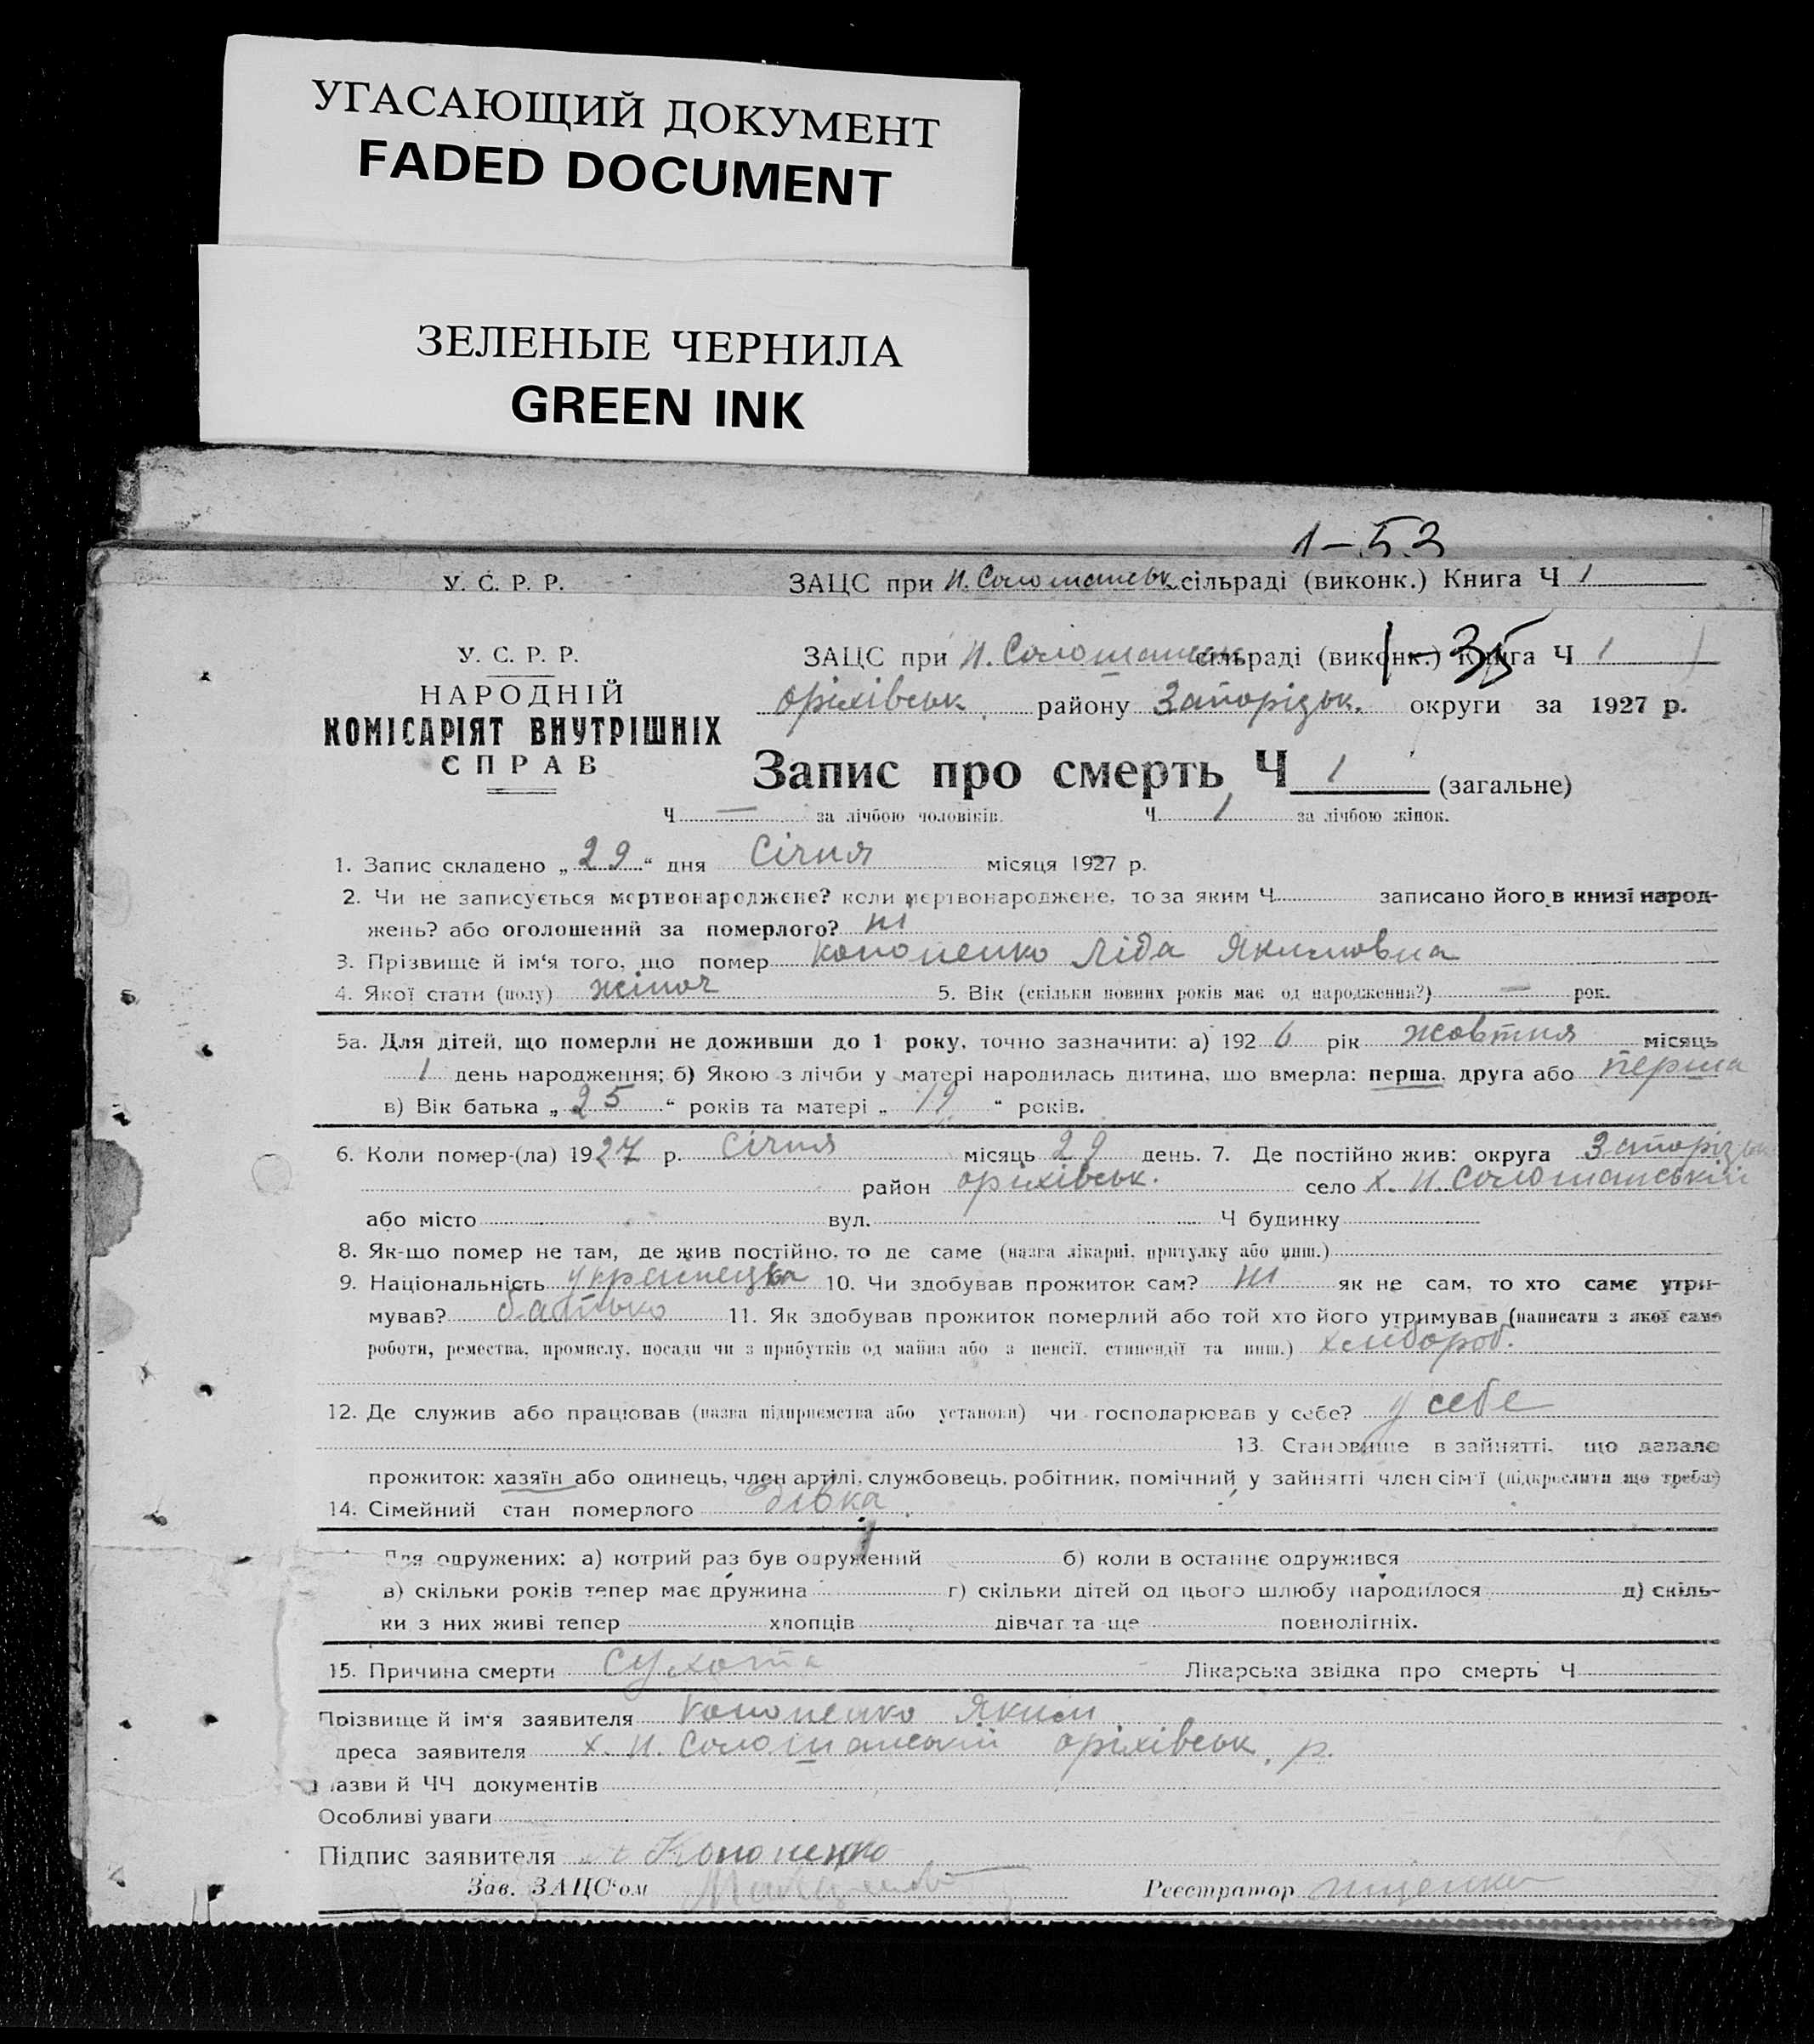 УГАСАЮЩИЙ ДОКУМЕНТ
FADED DOCUMENT
ЗЕЛЕНЫЕ ЧЕРНИЛА
GREEN INK
1-53
У. С. Р. Р. ЗАЦС при Н. Солошанськ. сільраді (виконк.) Книга Ч 1
У. С. Р. Р. ЗАЦС при Н. Солошанськ сільраді (виконк.) Книга Ч 1
1-35
НАРОДНІЙ оріхівськ. району Запорізьк. округи за 1927 р.
КОМІСАРІЯТ ВНУТРІШНІХ
СПРАВ
Запис про смерть Ч 1 (загальне)
Ч — за лічбою чоловіків. Ч 1 за лічбою жінок.
1. Запис складено „29“ дня Січня місяця 1927 р.
2. Чи не записується мертвонароджене? коли мертвонароджене, то за яким Ч записано його в книзі народ-
жень? або оголошений за померлого? ні
3. Прізвище й ім'я того, що помер Кононенко Ліда Якимовна
4. Якої стати (полу) жіноч 5. Вік (скільки повних років має од народження?) — рок.
5а. Для дітей, що померли не доживши до 1 року, точно зазначити: а) 1926 рік жовтня місяць
1 день народження; б) Якою з лічби у матері народилась дитина, що вмерла: перша, друга або перша
в) Вік батька „25“ років та матері „19“ років.
6. Коли помер-(ла) 1927 р. січня місяць 29 день. 7. Де постійно жив: округа Запорізьк
район оріхівськ. село х. Н. Солошанський
або місто вул. Ч будинку
8. Як-що помер не там, де жив постійно, то де саме (назва лікарні, притулку або инш.)
9. Національність українецка 10. Чи здобував прожиток сам? ні як не сам, то хто саме утри-
мував? батько 11. Як здобував прожиток померлий або той хто його утримував (написати з якої само
роботи, ремества, промислу, посади чи з прибутків од майна або з пенсії, стипендії та инш.) хлібороб.
12. Де служив або працював (назва підприємства або установи) чи господарював у себе? у себе
13. Становище в зайнятті, що давало
прожиток: хазяїн або одинець, член артілі, службовець, робітник, помічний у зайнятті член сім'ї (підкреслити що треба)
14. Сімейний стан померлого дівка
Для одружених: а) котрий раз був одружений б) коли в останнє одружився
в) скільки років тепер має дружина г) скільки дітей од цього шлюбу народилося д) скіль-
ки з них живі тепер хлопців дівчат та ще повнолітніх.
15. Причина смерти сухота Лікарська звідка про смерть Ч
Прізвище й ім'я заявителя Кононенко Яким
дреса заявителя х. Н. Солошанський оріхівськ. р.
Назви й ЧЧ документів
Особливі уваги
Підпис заявителя Кононенко
Зав. ЗАЦС'ом Реєстратор